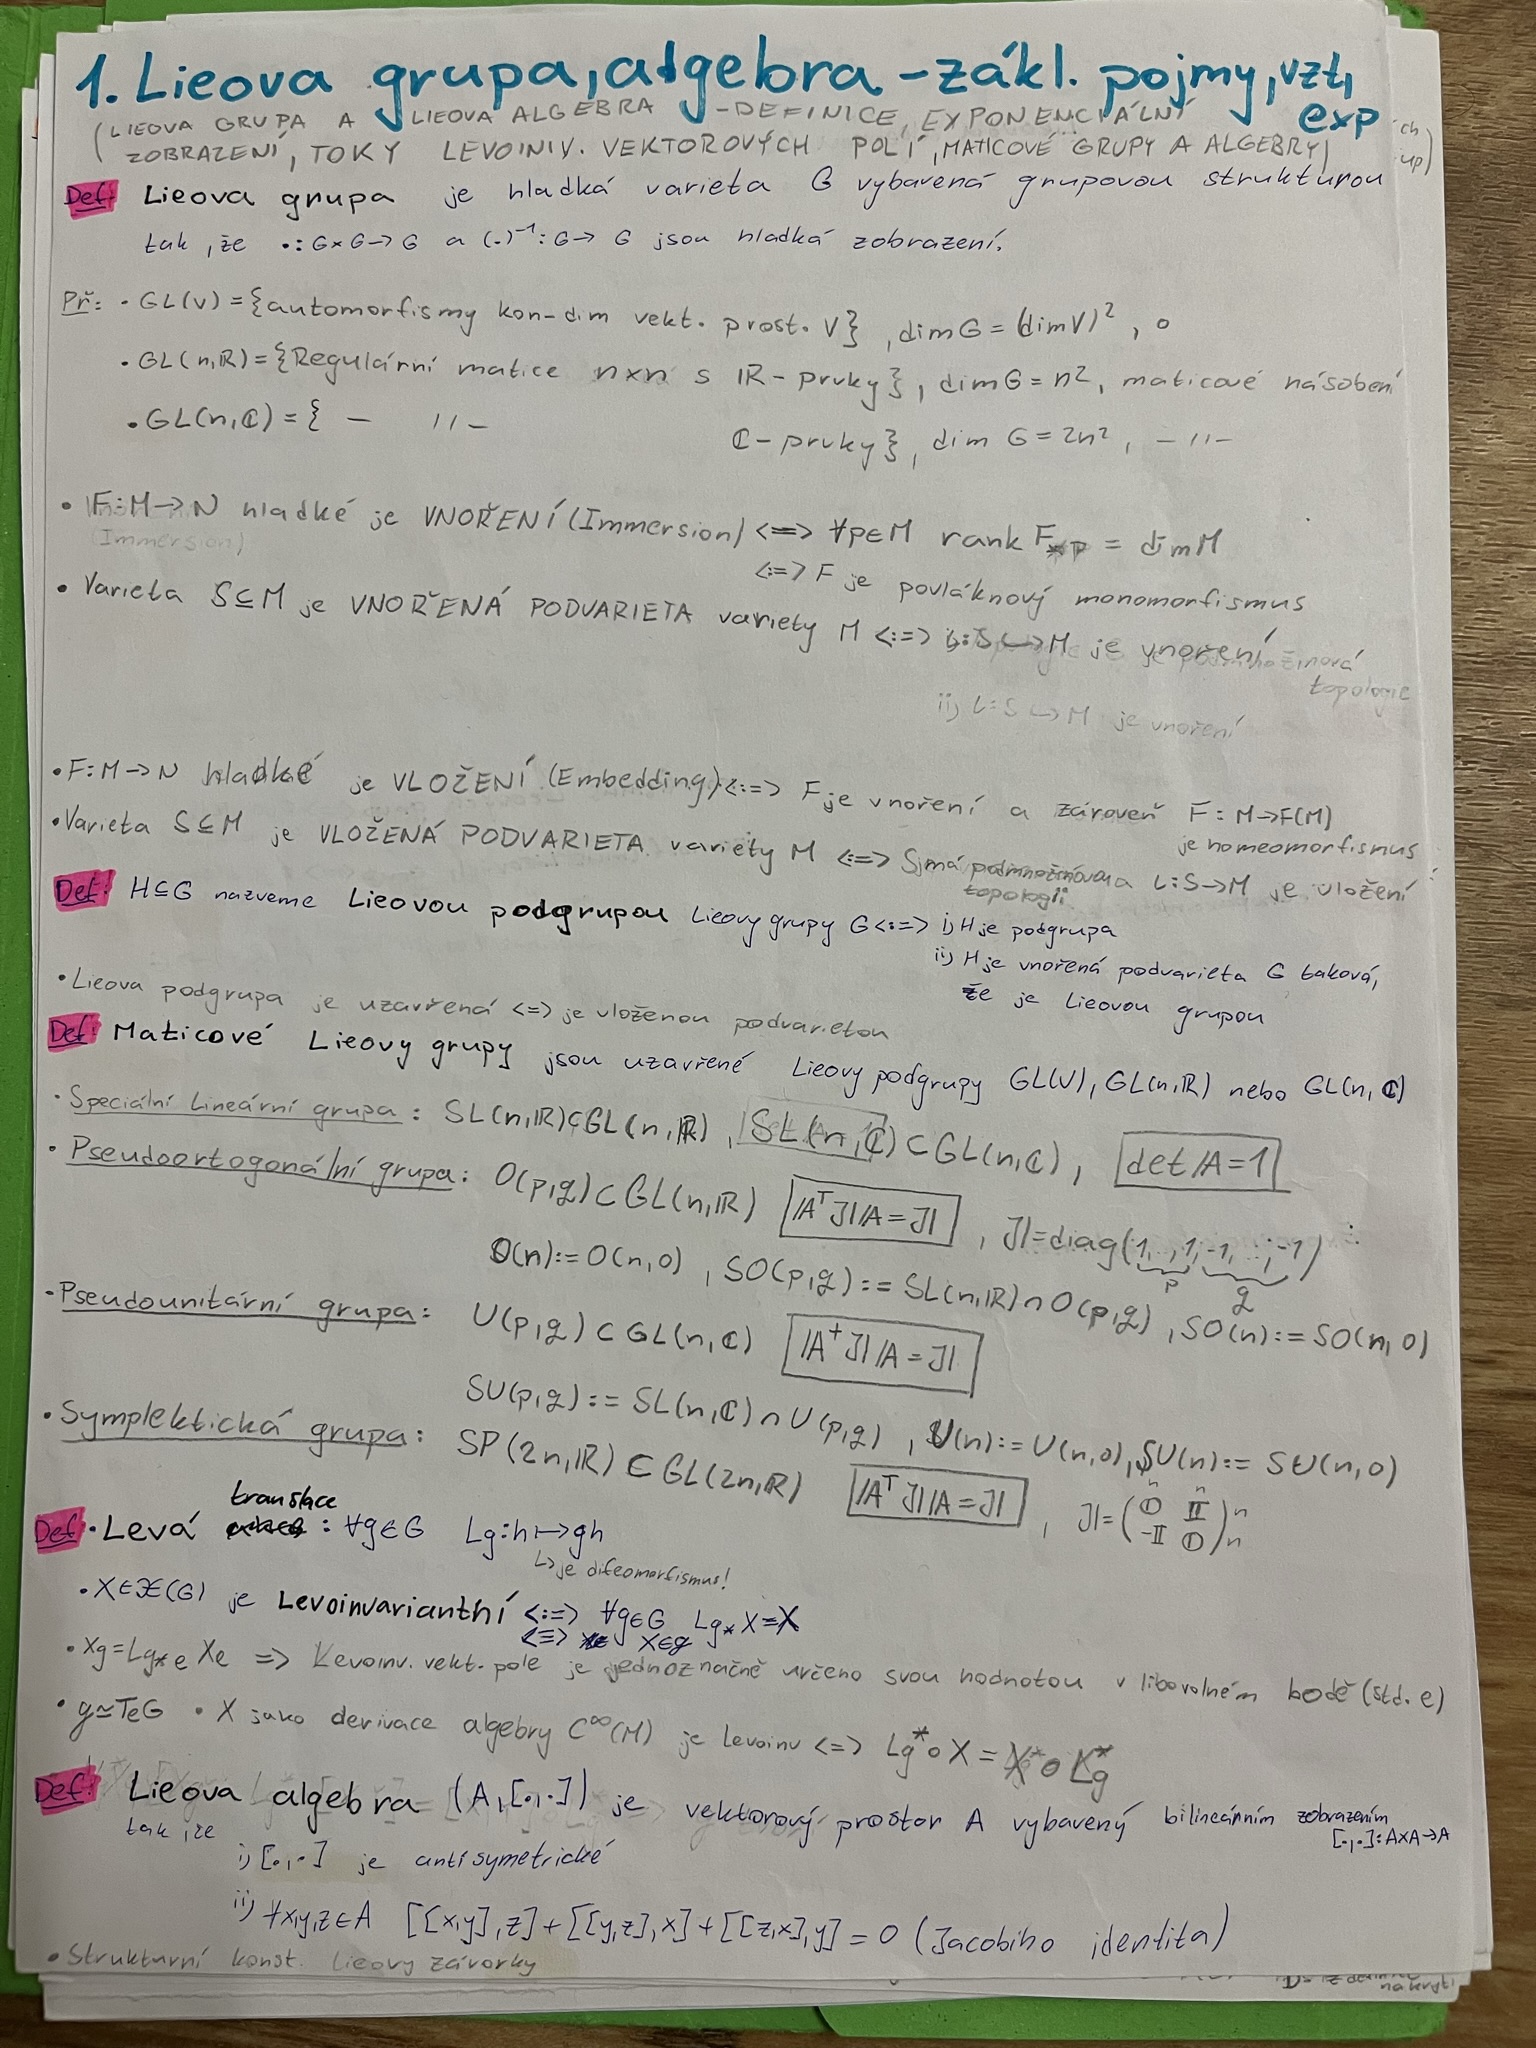 1. Lieova grupa, algebra - zákl. pojmy, vzt, exp
(LIEOVA GRUPA A LIEOVA ALGEBRA - DEFINICE, EXPONENCIÁLNÍ
ZOBRAZENÍ, TOKY LEVOINV. VEKTOROVÝCH POLÍ, MATICOVÉ GRUPY A ALGEBRY)
Def: Lieova grupa je hladká varieta G vybavená grupovou strukturou
tak, že •: G×G→G a (.)⁻¹: G→G jsou hladká zobrazení.
Př: • GL(V) = {automorfismy kon-dim vekt. prost. V}, dim G = (dim V)², ∘
• GL(n,ℝ) = {Regulární matice n×n s ℝ-prvky}, dim G = n², maticové násobení
• GL(n,ℂ) = { — 〃 — ℂ-prvky}, dim G = 2n², — 〃 —
• F: M→N hladké je VNOŘENÍ (Immersion) <=> ∀p∈M rank F*p = dim M
(Immersion)
<:=> F je povláknový monomorfismus
• Varieta S⊆M je VNOŘENÁ PODVARIETA variety M <:=> ι: S↪M je vnoření
topologie
ii) ι: S↪M je vnoření
• F: M→N hladké je VLOŽENÍ (Embedding) <:=> F je vnoření a zároveň F: M→F(M)
je homeomorfismus
• Varieta S⊆M je VLOŽENÁ PODVARIETA variety M <:=> S má podmnožinovou topologii a ι: S→M je vložení
Def: H⊆G nazveme Lieovou podgrupou Lieovy grupy G <:=> i) H je podgrupa
ii) H je vnořená podvarieta G taková,
že je Lieovou grupou
• Lieova podgrupa je uzavřená <=> je vloženou podvarietou
Def: Maticové Lieovy grupy jsou uzavřené Lieovy podgrupy GL(V), GL(n,ℝ) nebo GL(n,ℂ)
• Speciální Lineární grupa: SL(n,ℝ)⊂GL(n,ℝ), SL(n,ℂ)⊂GL(n,ℂ), det 𝔸 = 1
• Pseudoortogonální grupa: O(p,q)⊂GL(n,ℝ) 𝔸ᵀ𝕁𝔸 = 𝕁, 𝕁 = diag(1,..,1,-1,..,-1)
p q
O(n) := O(n,0), SO(p,q) := SL(n,ℝ)∩O(p,q), SO(n) := SO(n,0)
• Pseudounitární grupa: U(p,q)⊂GL(n,ℂ) 𝔸⁺𝕁𝔸 = 𝕁
SU(p,q) := SL(n,ℂ)∩U(p,q), U(n) := U(n,0), SU(n) := SU(n,0)
• Symplektická grupa: SP(2n,ℝ)⊂GL(2n,ℝ) 𝔸ᵀ𝕁𝔸 = 𝕁, 𝕁 = (𝕆 𝕀 / -𝕀 𝕆) n n
Def: • Levá translace : ∀g∈G Lg: h↦gh
↳ je difeomorfismus!
• X∈𝔛(G) je Levoinvariantní <:=> ∀g∈G Lg* X = X
<:=> X∈g
• Xg = Lg*e Xe => Levoinv. vekt. pole je jednoznačně určeno svou hodnotou v libovolném bodě (std. e)
• g≃TeG • X jako derivace algebry C^∞(M) je levoinv <=> Lg*∘X = X∘Lg*
Def: Lieova algebra (A,[.,.]) je vektorový prostor A vybavený bilineárním zobrazením
[.,.]: A×A→A
tak, že
i) [.,.] je antisymetrické
ii) ∀x,y,z∈A [[x,y],z]+[[y,z],x]+[[z,x],y] = 0 (Jacobiho identita)
• Strukturní konst. Lieovy závorky